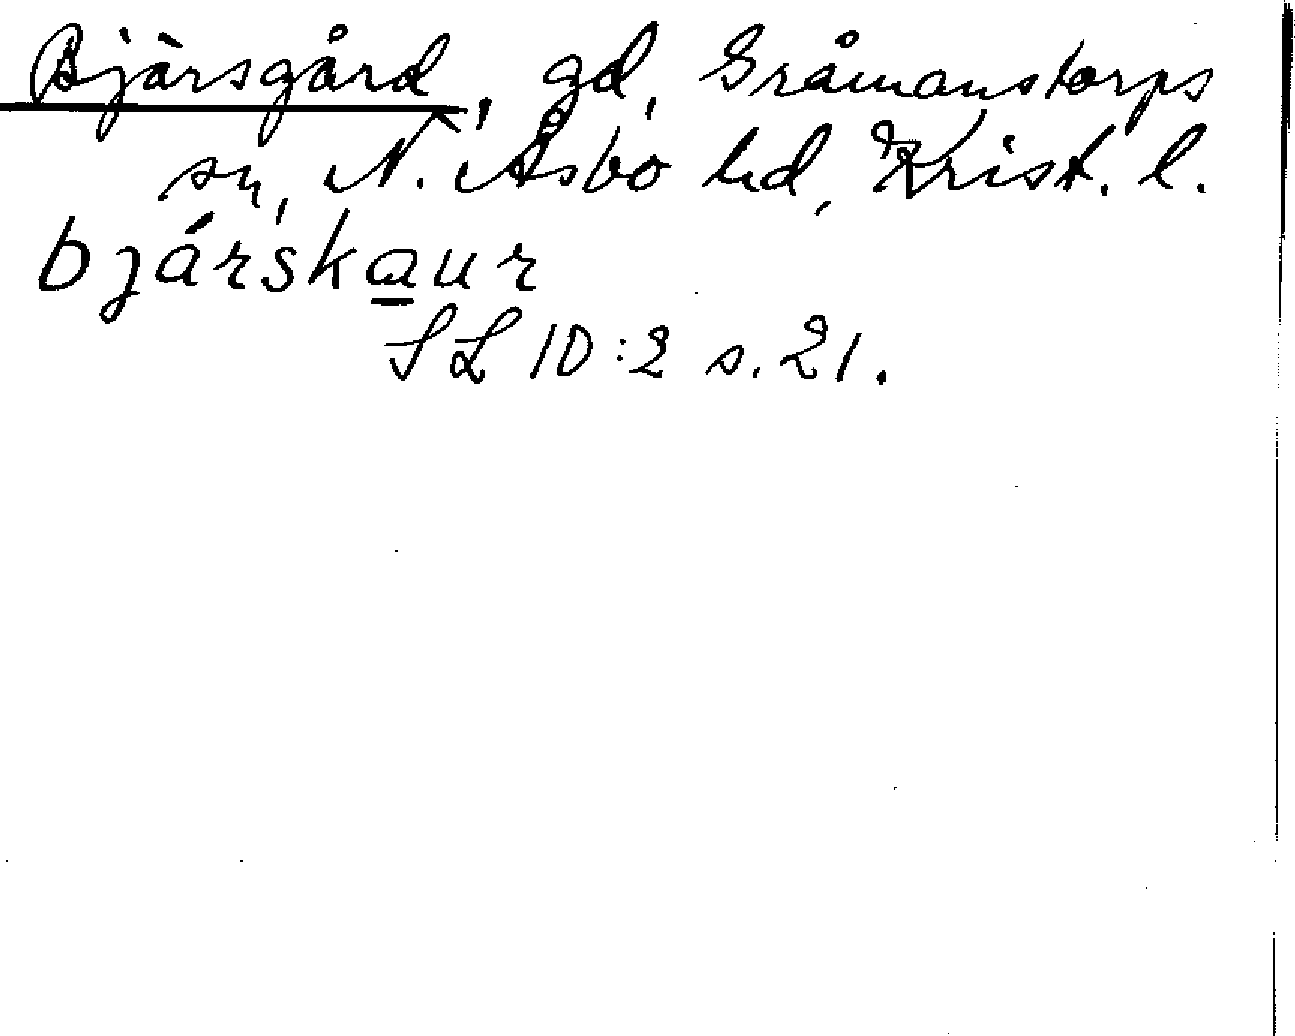 Bjärsgård, gd, Gråmanstorps
sn, N. Åsbo hd, Krist. l.
bjárskau̲r
SL 10:2 s. 21.